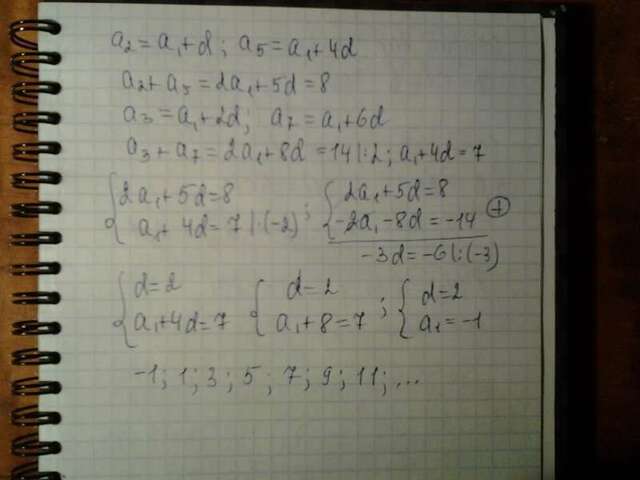 a₂ = a₁ + d ; a₅ = a₁ + 4d
a₂ + a₅ = 2a₁ + 5d = 8
a₃ = a₁ + 2d ; a₇ = a₁ + 6d
a₃ + a₇ = 2a₁ + 8d = 14 |:2 ; a₁ + 4d = 7
{ 2a₁ + 5d = 8 ; { 2a₁ + 5d = 8
a₁ + 4d = 7 |·(-2) -2a₁ - 8d = -14 ⊕
-3d = -6 |:(-3)
{ d = 2 { d = 2 ; { d = 2
a₁ + 4d = 7 a₁ + 8 = 7 a₁ = -1
-1 ; 1 ; 3 ; 5 ; 7 ; 9 ; 11 ; ...